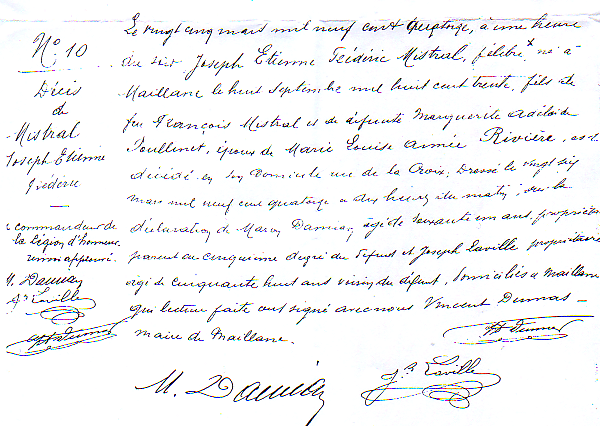 N° 10
Décès
de
Mistral
Joseph Etienne
Frédéric
commandeur de
la Légion d'honneur
M. Dauman
Js Laville
Le vingt cinq mars mil neuf cent quatorze, à une heure
du soir Joseph Etienne Frédéric Mistral, célibre x né à
Maillane le huit septembre mil huit cent trente, fils de
feu François Mistral et de défunte Marguerite Adélaïde
Poullinet, époux de Marie Louise Aimée Rivière, est
décédé en son domicile rue de la Croix. Dressé le vingt six
mars mil neuf cent quatorze à dix heures du matin, sur la
déclaration de Damian, âgé de soixante un ans, propriétaire
parent au cinquième degré du défunt et Joseph Laville propriétaire
âgé de cinquante huit ans voisin du défunt, domiciliés à Maillane
qui lecture faite ont signé avec nous Vincent Dumas
maire de Maillane.
M. Dauman
Js Laville